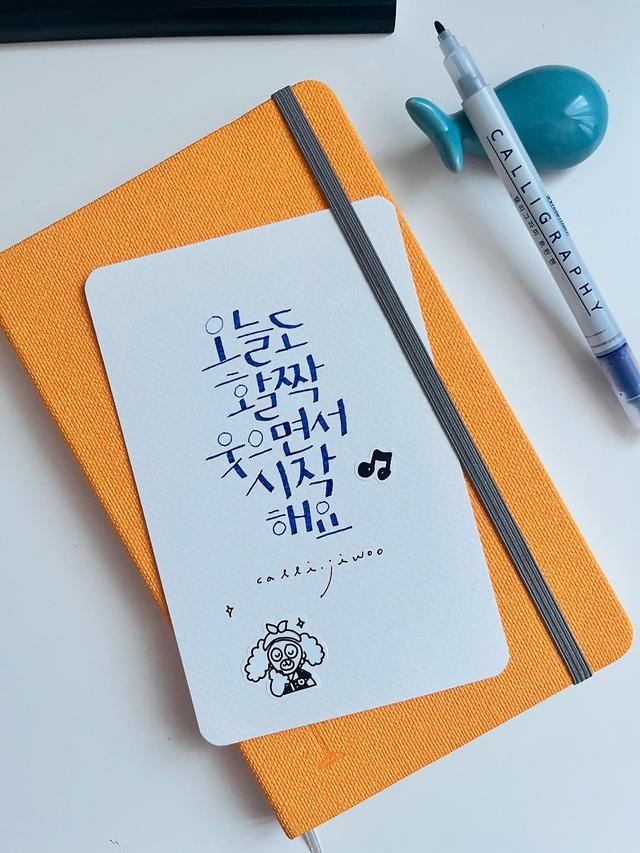 오늘도
활짝
웃으면서
시작
해요
calli.jiwoo
CALLIGRAPHY
캘리그라피 트윈 펜